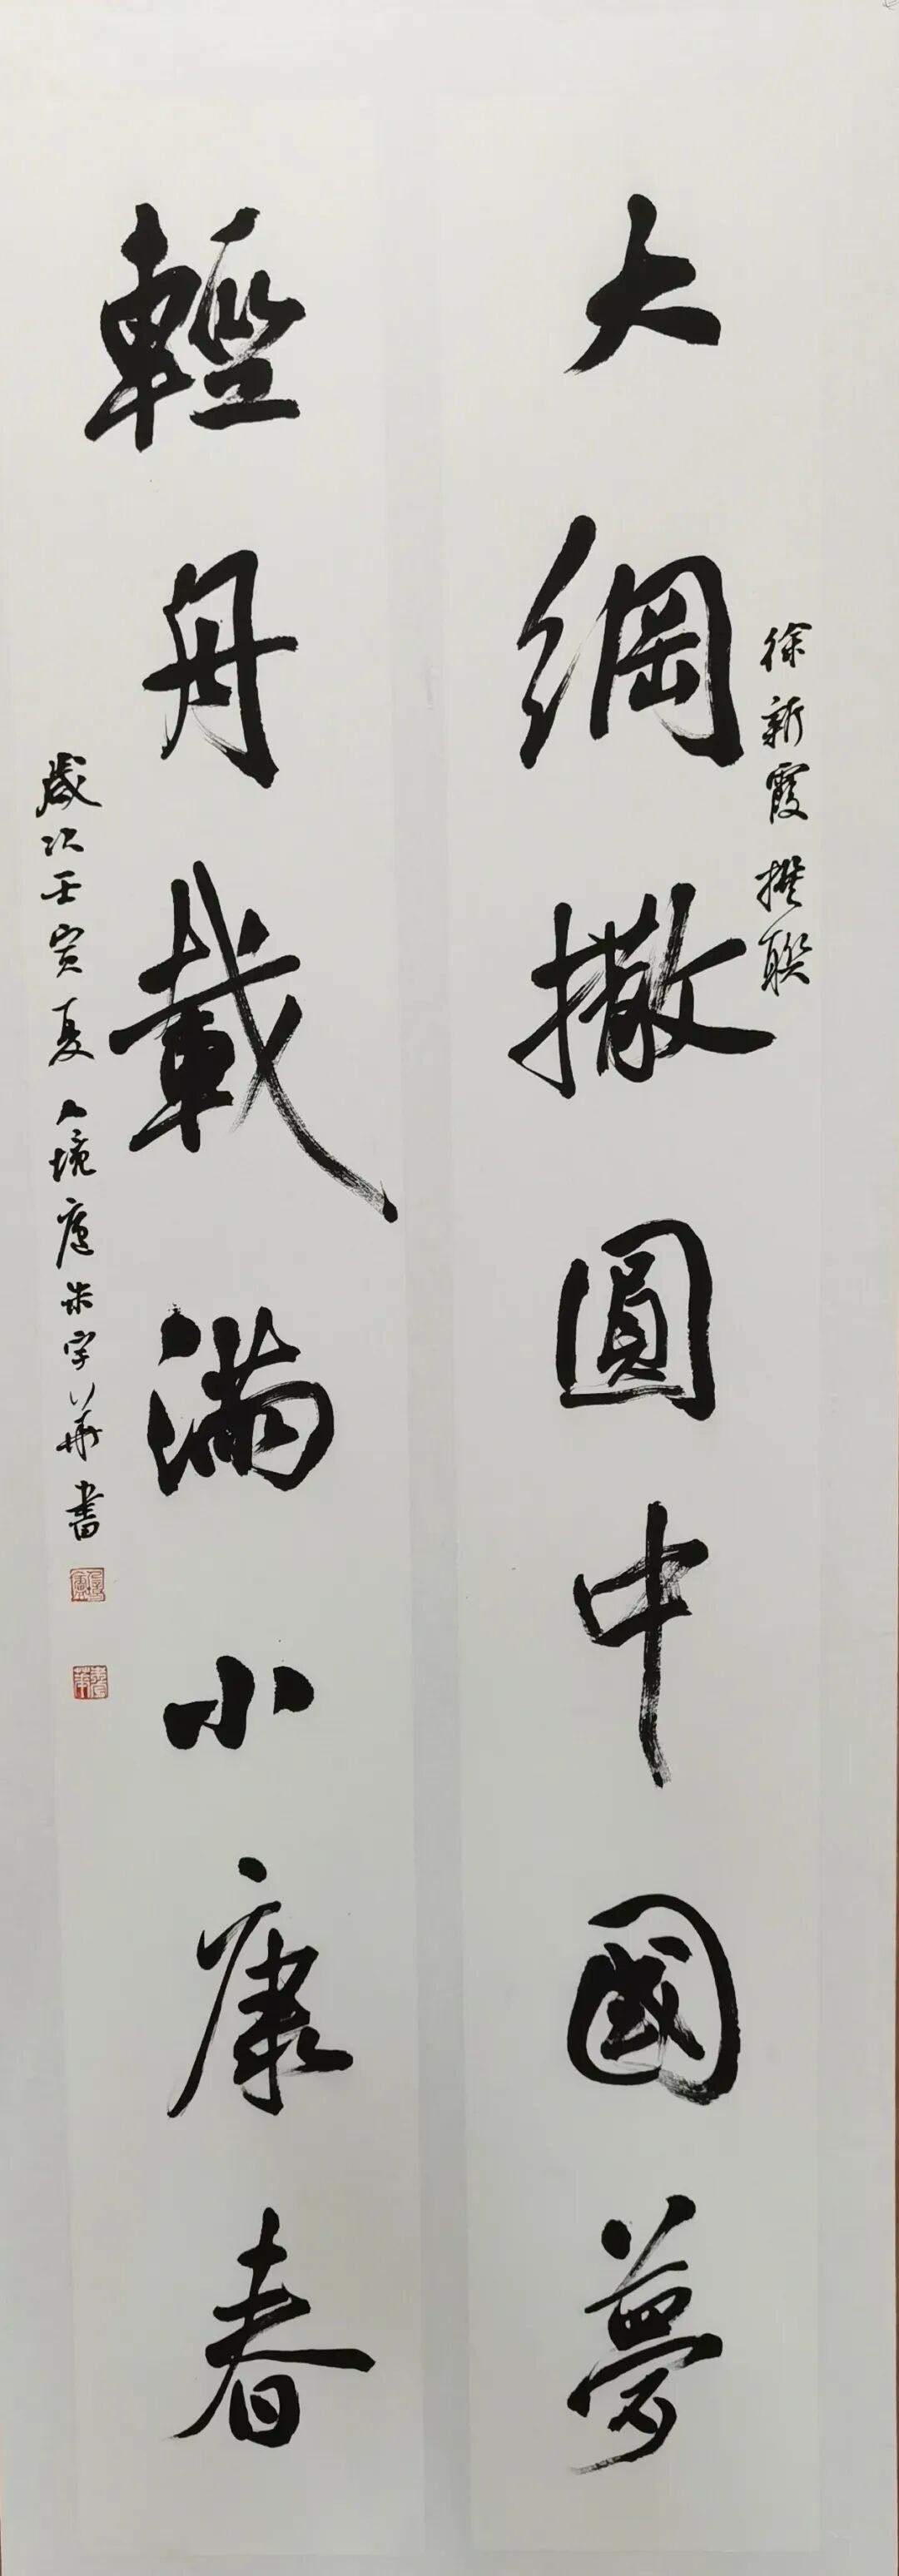 徐新霞撰聯
大綱撒圓中國夢
輕舟載滿小康春
歲次壬寅夏人境廬朱宇華書